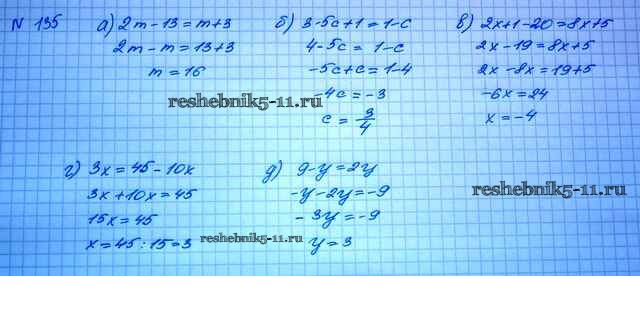 N 135
а) 2m-13=m+3
2m-m=13+3
m=16
б) 3-5c+1=1-c
4-5c=1-c
-5c+c=1-4
-4c=-3
c=3/4
в) 2x+1-20=8x+5
2x-19=8x+5
2x-8x=19+5
-6x=24
x=-4
г) 3x=45-10x
3x+10x=45
15x=45
x=45:15=3
д) 9-y=2y
-y-2y=-9
-3y=-9
y=3
reshebnik5-11.ru
reshebnik5-11.ru
reshebnik5-11.ru